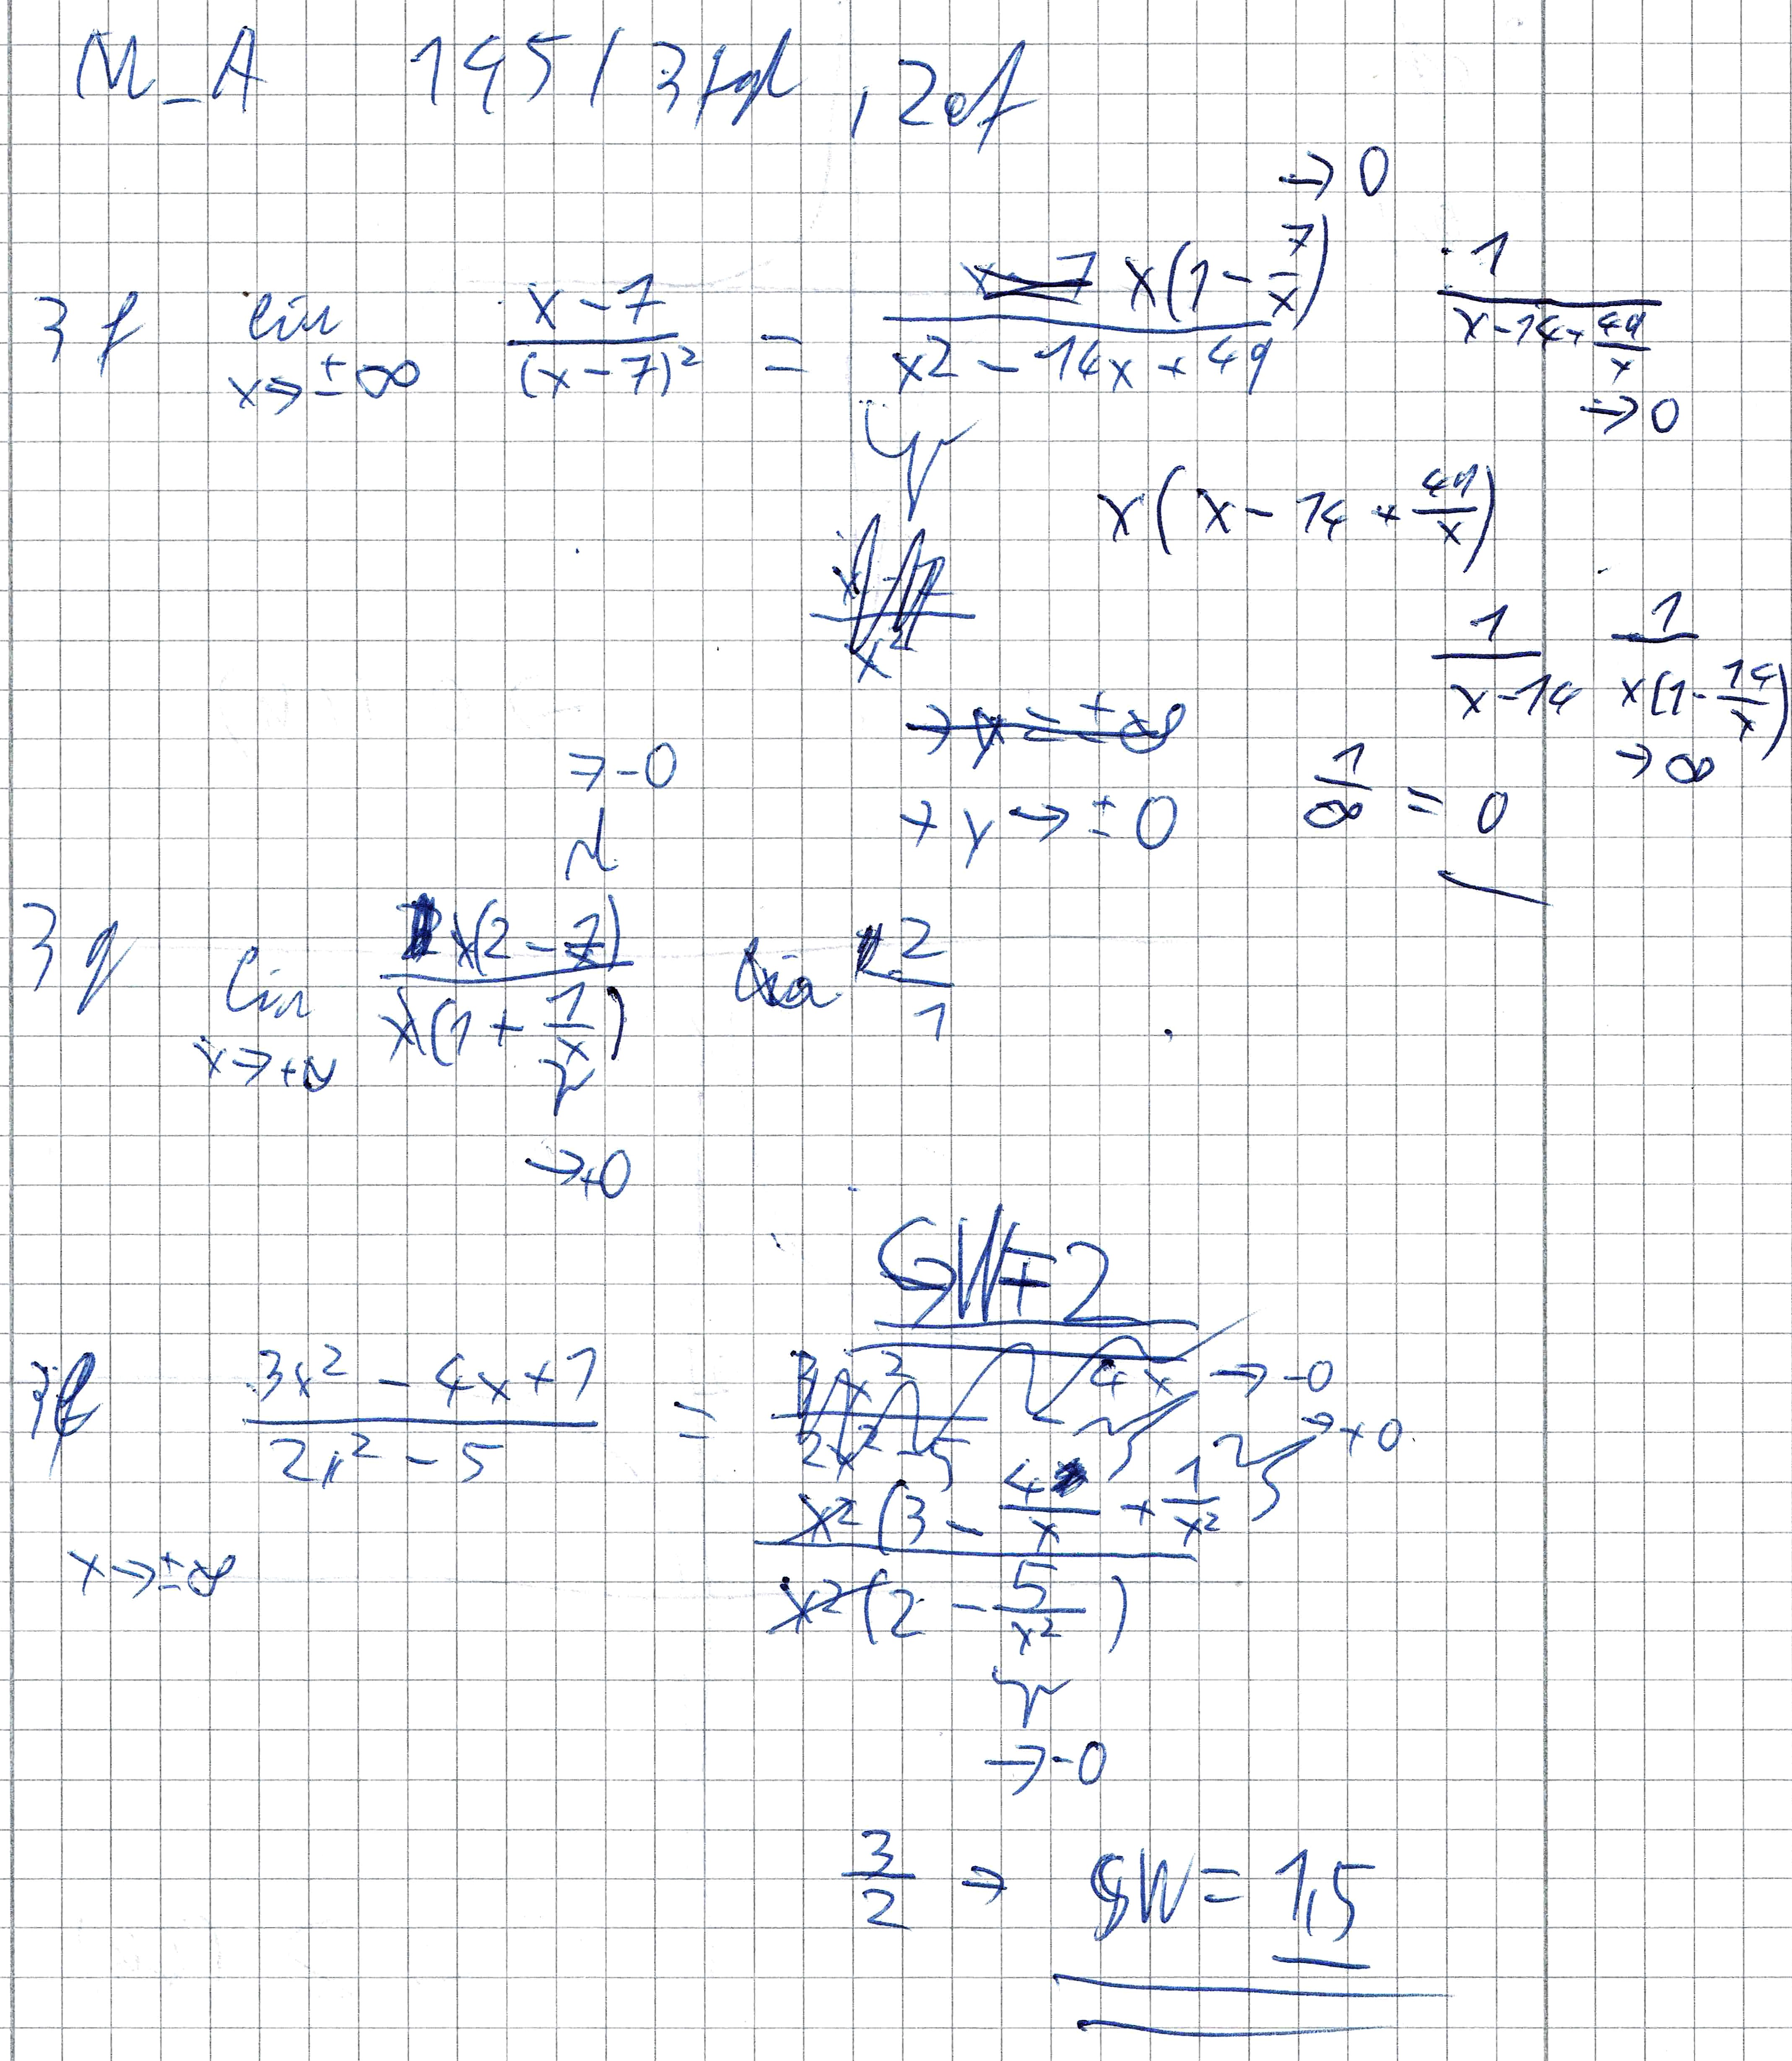 M_A 195 / 3fgh , 2ef
3f lim x→±∞ (x-7)/(x-7)² = x(1-7/x) / (x2 - 14x + 49) →0 1/(x-14+49/x) →0
x(x - 14 + 49/x)
1/(x-14) 1/(x(1-14/x)) →∞
→ y → ±0 1/∞ = 0
→-0
3g lim x→+∞ x(2-7)/(x(1+1/x)) 2/1
→+0
GW = 2
(3x² - 4x + 1)/(2x² - 5) = x²(3 - 4/x + 1/x²) / (x²(2 - 5/x²)) → -0 → +0
x→±∞
→-0
3/2 → GW = 1,5